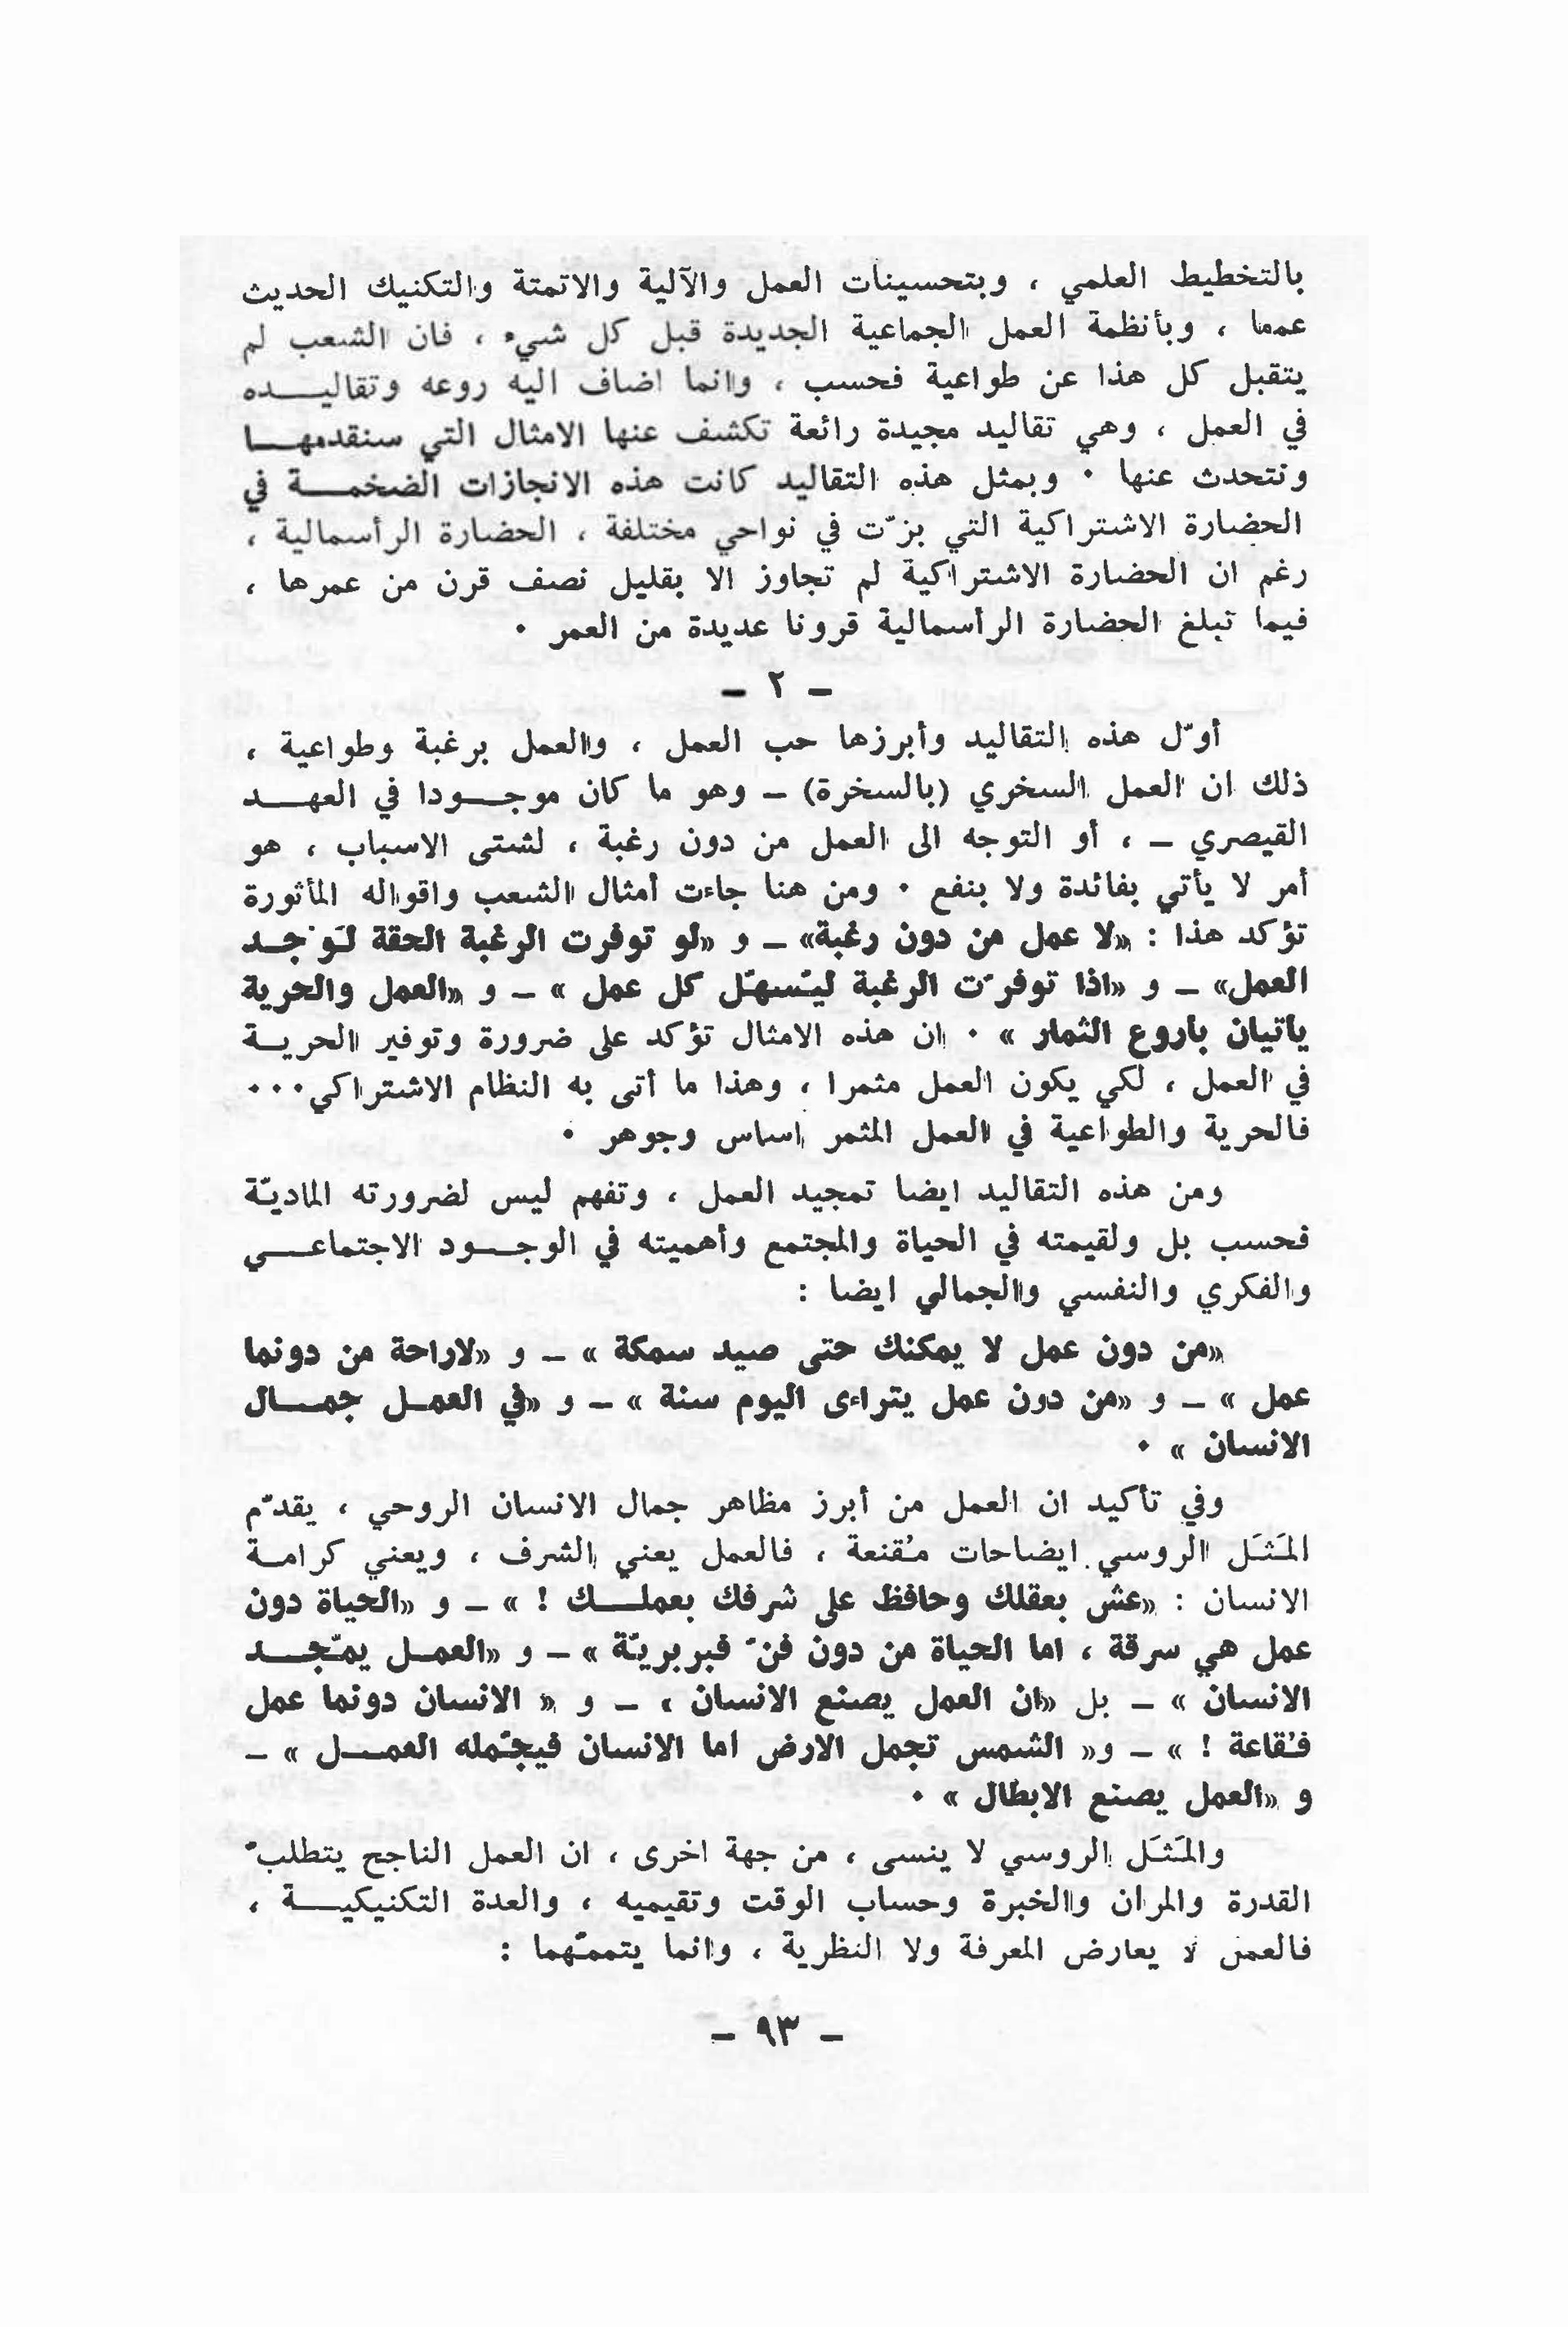 بالتخطيط العلمي ، وبتحسينات العمل والآلية والاتمتة والتكنيك الحديث
عمما ، وبأنظمة العمل الجماعية الجديدة قبل كل شيء ، فان الشعب لم
يتقبل كل هذا عن طواعية فحسب ، وانما اضاف اليه روعه وتقاليـــده
في العمل ، وهي تقاليد مجيدة رائعة تكشف عنها الامثال التي سنقدمهــا
ونتحدث عنها ٠ وبمثل هذه التقاليد كانت هذه الانجازات الضخمـــة في
الحضارة الاشتراكية التي بزّت في نواحي مختلفة ، الحضارة الرأسمالية ،
رغم ان الحضارة الاشتراكية لم تجاوز الا بقليل نصف قرن من عمرها ،
فيما تبلغ الحضارة الرأسمالية قرونا عديدة من العمر ٠
– ٢ –
أوّل هذه التقاليد وأبرزها حب العمل ، والعمل برغبة وطواعية ،
ذلك ان العمل السخري (بالسخرة) – وهو ما كان موجــودا في العهــد
القيصري – ، أو التوجه الى العمل من دون رغبة ، لشتى الاسباب ، هو
أمر لا يأتي بفائدة ولا بنفع ٠ ومن هنا جاءت أمثال الشعب واقواله المأثورة
تؤكد هذا : «لا عمل من دون رغبة» – و «لو توفرت الرغبة الحقة لوُجــد
العمل» – و «اذا توفرّت الرغبة ليَسهّل كل عمل » – و «العمل والحرية
يأتيان بأروع الثمار » ٠ ان هذه الامثال تؤكد على ضرورة وتوفير الحريــة
في العمل ، لكي يكون العمل مثمرا ، وهذا ما أتى به النظام الاشتراكي٠٠٠
فالحرية والطواعية في العمل المثمر اساس وجوهر ٠
ومن هذه التقاليد ايضا تمجيد العمل ، وتفهم ليس لضرورته الماديّة
فحسب بل ولقيمته في الحياة والمجتمع وأهميته في الوجــود الاجتماعــي
والفكري والنفسي والجمالي ايضا :
«من دون عمل لا يمكنك حتى صيد سمكة » – و «لاراحة من دونما
عمل » – و «من دون عمل يتراءى اليوم سنة » – و «في العمــل جمــال
الانسان » ٠
وفي تأكيد ان العمل من أبرز مظاهر جمال الانسان الروحي ، يقدّم
المَثَل الروسي ايضاحات مُقنعة ، فالعمل يعني الشرف ، ويعني كرامــة
الانسان : «عش بعقلك وحافظ على شرفك بعملــك ! » – و «الحياة دون
عمل هي سرقة ، اما الحياة من دون فنّ فبربريّة » – و «العمــل يمّجــد
الانسان » – بل «ان العمل يصنع الانسان ، – و « الانسان دونما عمل
فُقاعة ! » – و« الشمس تجمل الارض اما الانسان فيجّمله العمــل » –
و «العمل يصنع الابطال » ٠
والمَثَل الروسي لا ينسى ، من جهة اخرى ، ان العمل الناجح يتطلبّ
القدرة والمران والخبرة وحساب الوقت وتقيميه ، والعدة التكنيكيــة ،
فالعمل لا يعارض المعرفة ولا النظرية ، وانما يتممّهما :
– ٩٣ –